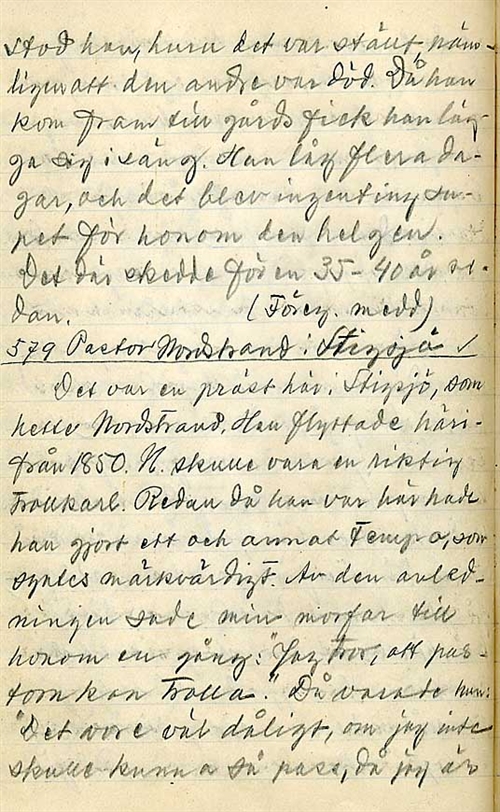 stod han, huru det var ställt näm-
ligen att den andre var död. Då han
kom fram till gårds fick han läg-
ga sig i säng. Han låg flera da-
gar, och det blev ingenting su-
pet för honom den helgen.
Det där skedde för en 35-40 år se-
dan. (Föreg. medd)
579 Pastor Nordstrand i Stigsjö
Det var en präst här i Stigsjö, som
hette Nordstrand. Han flyttade häri-
från 1850. N. skulle vara en riktig
Trollkarl. Redan då han var här hade
han gjort ett och annat Tempo, som
syntes märkvärdigt. Av den anled-
ningen sade min morfar till
honom en gång: "Jag Tror, att pas-
torn kan Trolla." Då svarade han:
"Det vore väl dåligt, om jag inte
skulle kunna så pass, då jag är